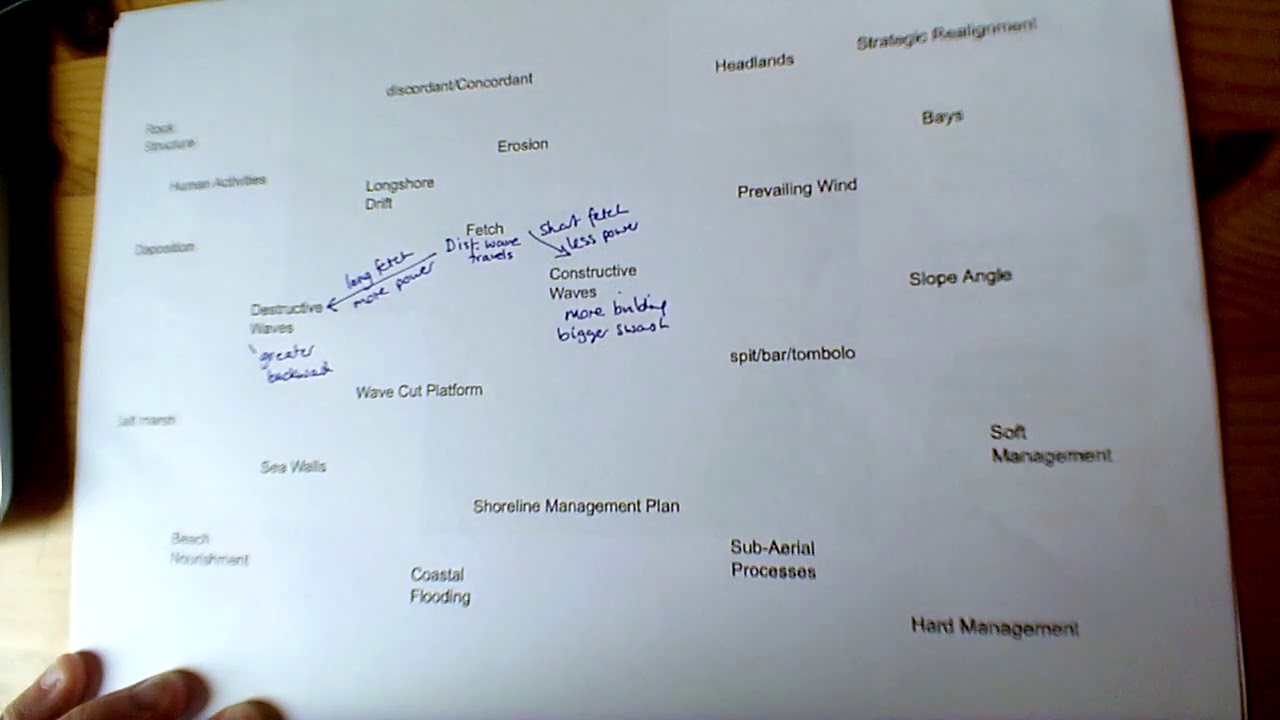 Strategic Realignment
Headlands
discordant/Concordant
Bays
Rock
Structure
Erosion
Human Activities
Longshore
Drift
Prevailing Wind
Fetch
Dist. wave
travels
short fetch
less power
Disposition
long fetch
more power
Constructive
Waves
more building
bigger swash
Slope Angle
Destructive
Waves
greater
backwash
spit/bar/tombolo
Wave Cut Platform
Salt marsh
Soft
Management
Sea Walls
Shoreline Management Plan
Beach
Nourishment
Sub-Aerial
Processes
Coastal
Flooding
Hard Management